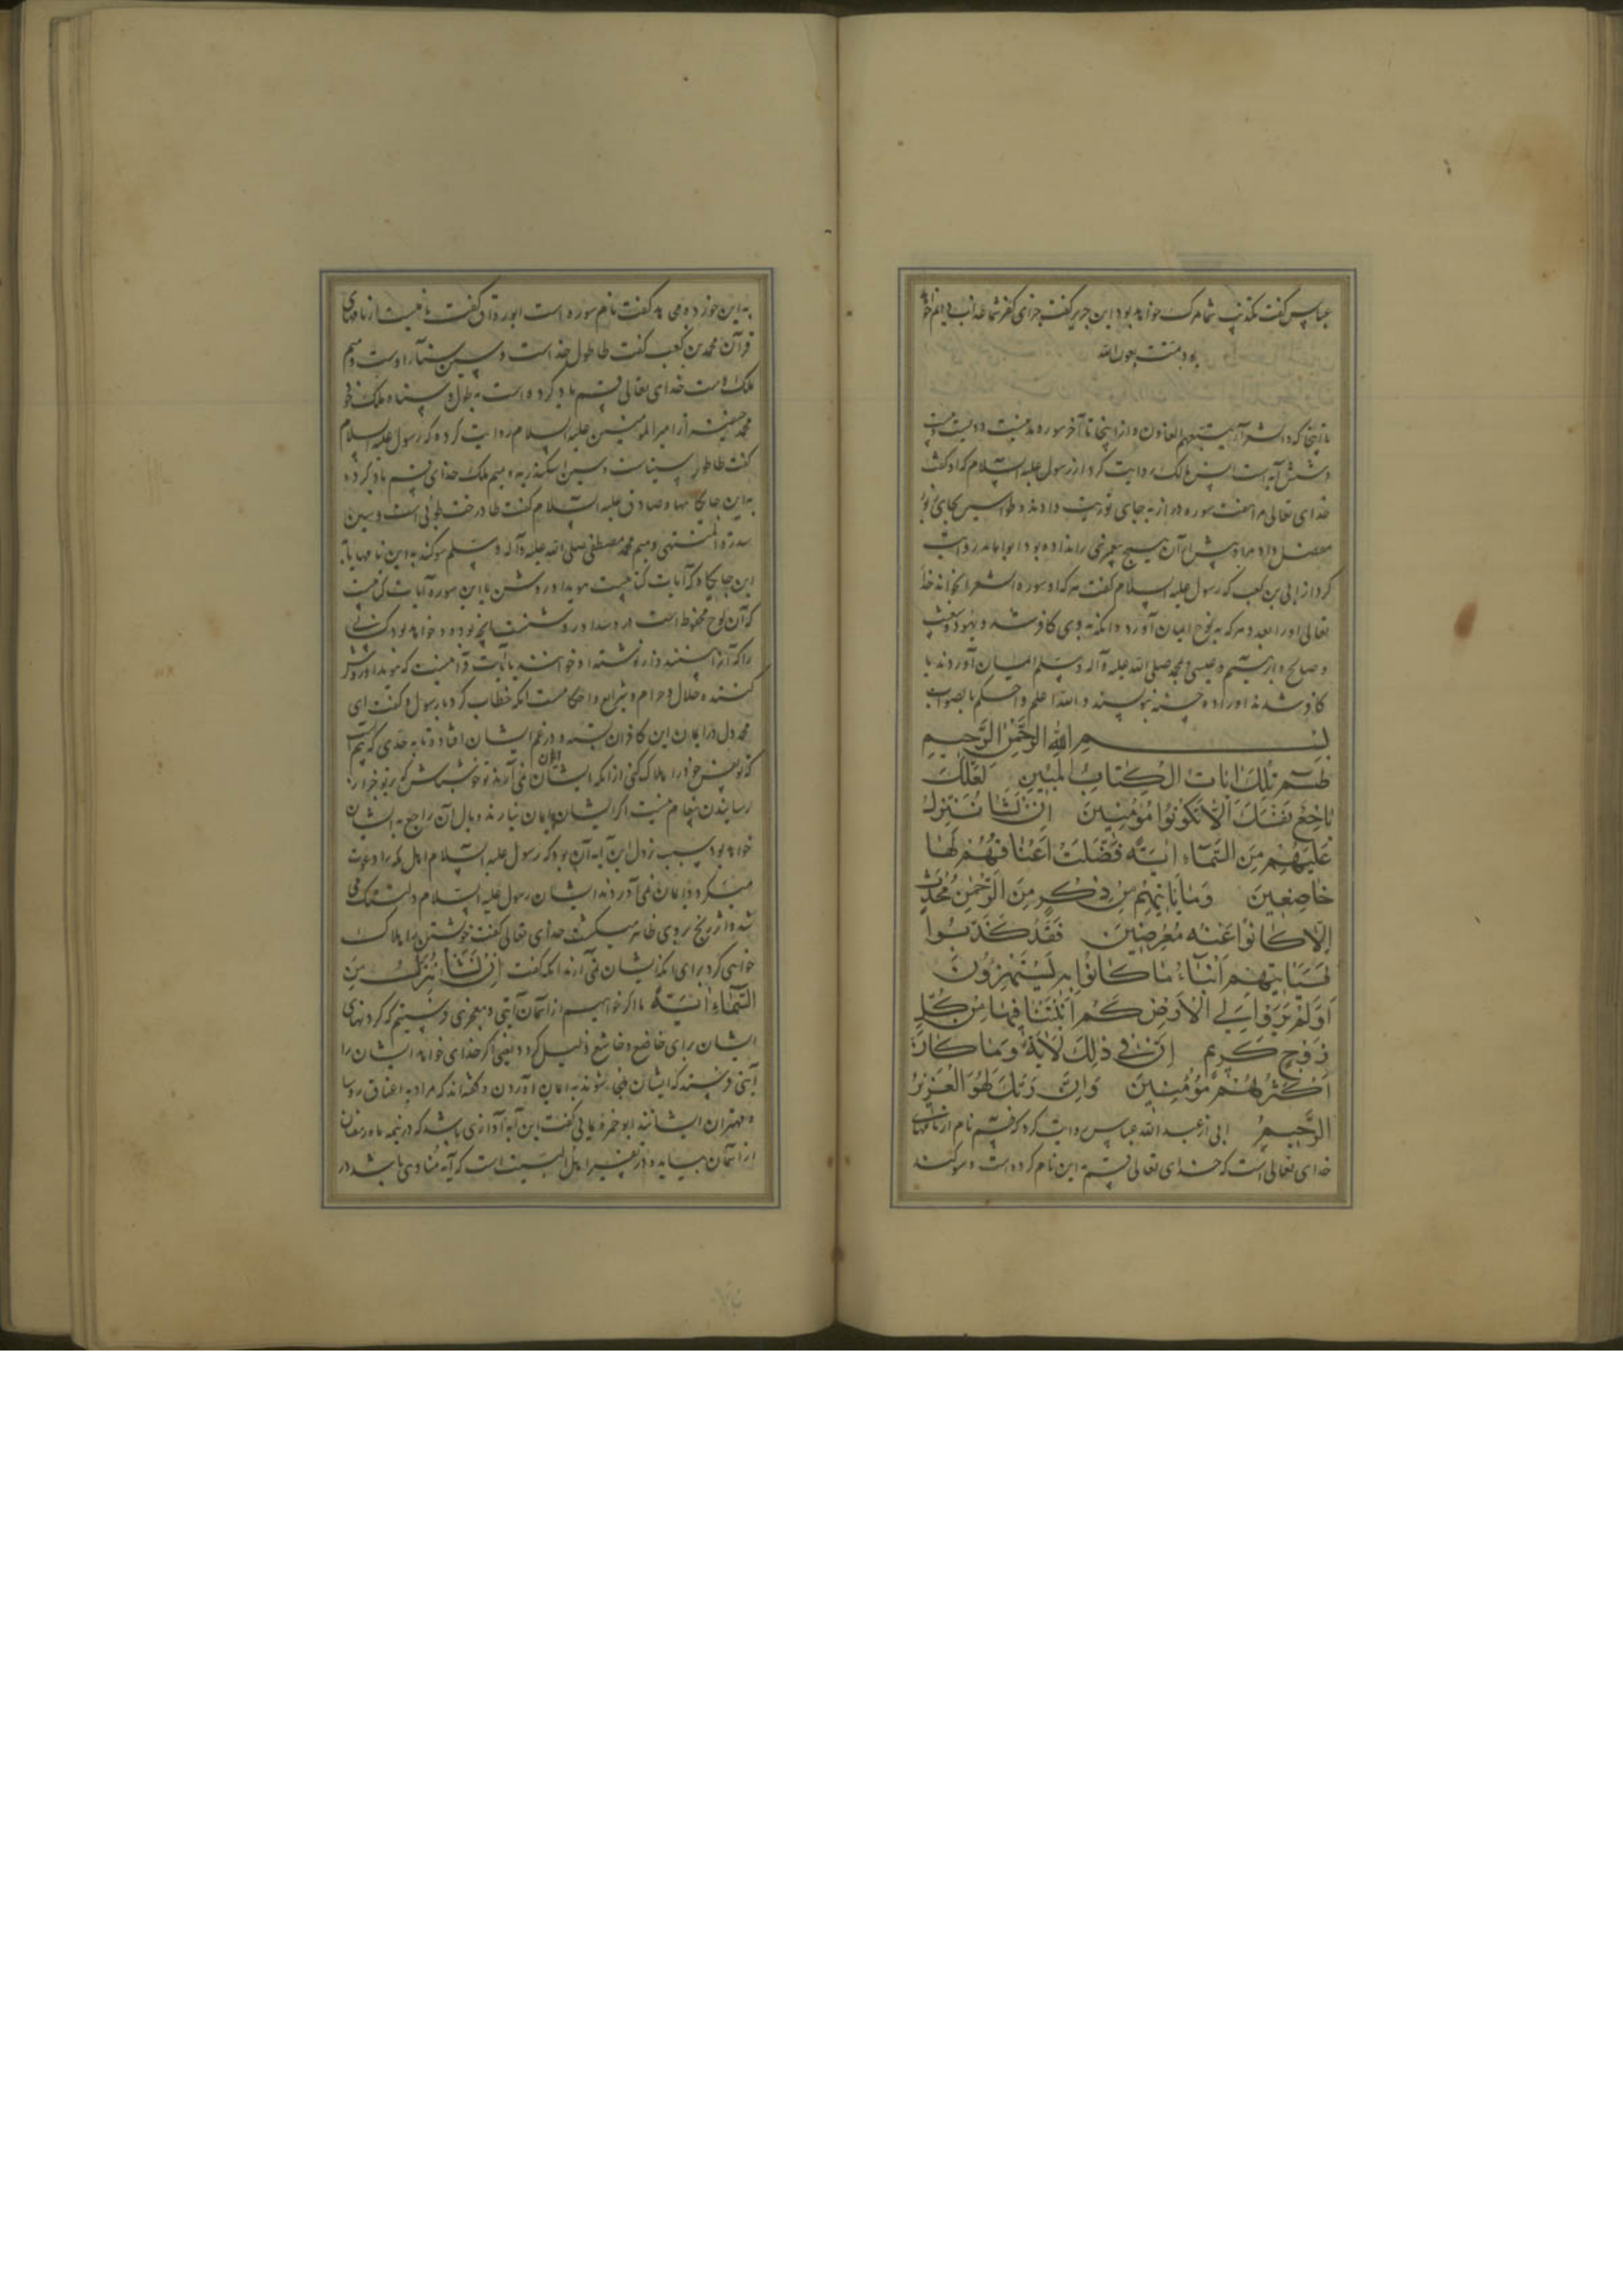 عباس گفت تکذیب شما مرگ خواهد بود ابن جریر گفت جزای کفر شما عذاب دایم خواهد
بود تمت بعون الله
تا اینجا که والشعراء یتبعهم الغاون و از اینجا تا آخر سوره مدنیست و دویست و بیست
و شش آیه است انس مالک روایت کرد از رسول علیه السلام که او گفت
خدای تعالی مرا هفت سوره دراز به جای توریت داد و طواسین بجای زبور
مفصل داد مرا و پیش از آن هیچ پیغمبری را نداده بود ابو امامه روایت
کرد از ابی بن کعب که رسول علیه السلام گفت هر که او سوره الشعرا بخواند خدا
تعالی او را بعدد هر که به نوح ایمان آورد و انکه به وی کافر شد و بهود و شعیب
و صالح و ابرهیم و عیسی و محمد صلی الله علیه و آله و سلم ایمان آوردند یا
کافر شدند او را ده حسنه بنویسند والله اعلم و احکم بالصواب
بسم الله الرحمن الرحیم
طسم تلک ایات الکتاب المبین لعلک
باخع نفسک الا تکونوا مؤمنین ان نشا ننزل
علیهم من السماء ایة فضلت اعناقهم لها
خاضعین وما یاتیهم من ذکر من الرحمن محدث
الا کانوا عنه معرضین فقد کذبوا
فسیاتیهم انباء ما کانوا به یستهزؤن
اولم یروا الی الارض کم انبتنا فیها من کل
زوج کریم ان فی ذلک لایة وما کان
اکثرهم مؤمنین وان ربک لهو العزیز
الرحیم ابی از عبد الله عباس روایت کرد که قسم نام از نامهای
خدای تعالی است که خدای تعالی قسم به این نام کرده است و سوکند
به این خورد و می گفت نام سوره است ابو روق گفت نامیست از نامهای
قرآن محمد بن کعب گفت طا طول خداست و سین سنآء اوست و میم
ملک اوست خدای تعالی قسم یاد کرده است به طول و سناء و ملک خود
محمد حنفیه از امیر المومنین علیه السلام روایت کرده که رسول علیه السلام
گفت طا طور سیناست و سین اسکندریه و میم مکه خدای قسم یاد کرده
به این جایگاهها و صادق علیه السلام گفت طا درخت طوبی است و سین
سدرة المنتهی و میم محمد مصطفی صلی الله علیه و آله و سلم سوکند به این نامها و به
این جایگاه که آیات کتابیست هویدا و روشن یا این سوره آیات کتابیست
که آن لوح محفوظ است
کننده حلال و حرام و شرایع و احکامست انکه خطاب کرد با رسول و گفت ای
محمد دل در ایمان این کافران بسته و در غم ایشان افتاده تا به حدی که بیم است
که تو نفس خود را هلاک کنی از انکه ایشان ایمان نمی آرند تو خوش باش که بر تو جز از
رسانیدن پیغام نیست اگر ایشان ایمان نیارند وبال آن راجع به ایشان
خواهد بود سبب نزول این آیه آن بود که رسول علیه السلام اهل مکه را دعوت
میکرد و ایمان نمی آوردند ایشان رسول علیه السلام دلتنگ می
شد و اثر رنج بر وی ظاهر میگشت خدای تعالی گفت خویشتن را هلاک
خواهی کرد برای انکه ایشان نمی آرند انکه گفت ان نشا ننزل من
السماء ایة ما اگر خواهیم از آسمان آیتی و معجزی فرستیم که گردنهای
ایشان برای خاضع و خاشع ذلیل گردد یعنی اگر خدای خواهد ایشان را
آیتی فرستد که ایشان ملجی شوند به ایمان آوردن و گفته‌اند که مراد به اعناق روسا
و مهتران ایشانند ابو حمزه ثمالی گفت این آیه آوازی باشد که در نیمه ماه رمضان
از آسمان بیاید و در تفسیر اهل البیت است که آیه منادی باشد در